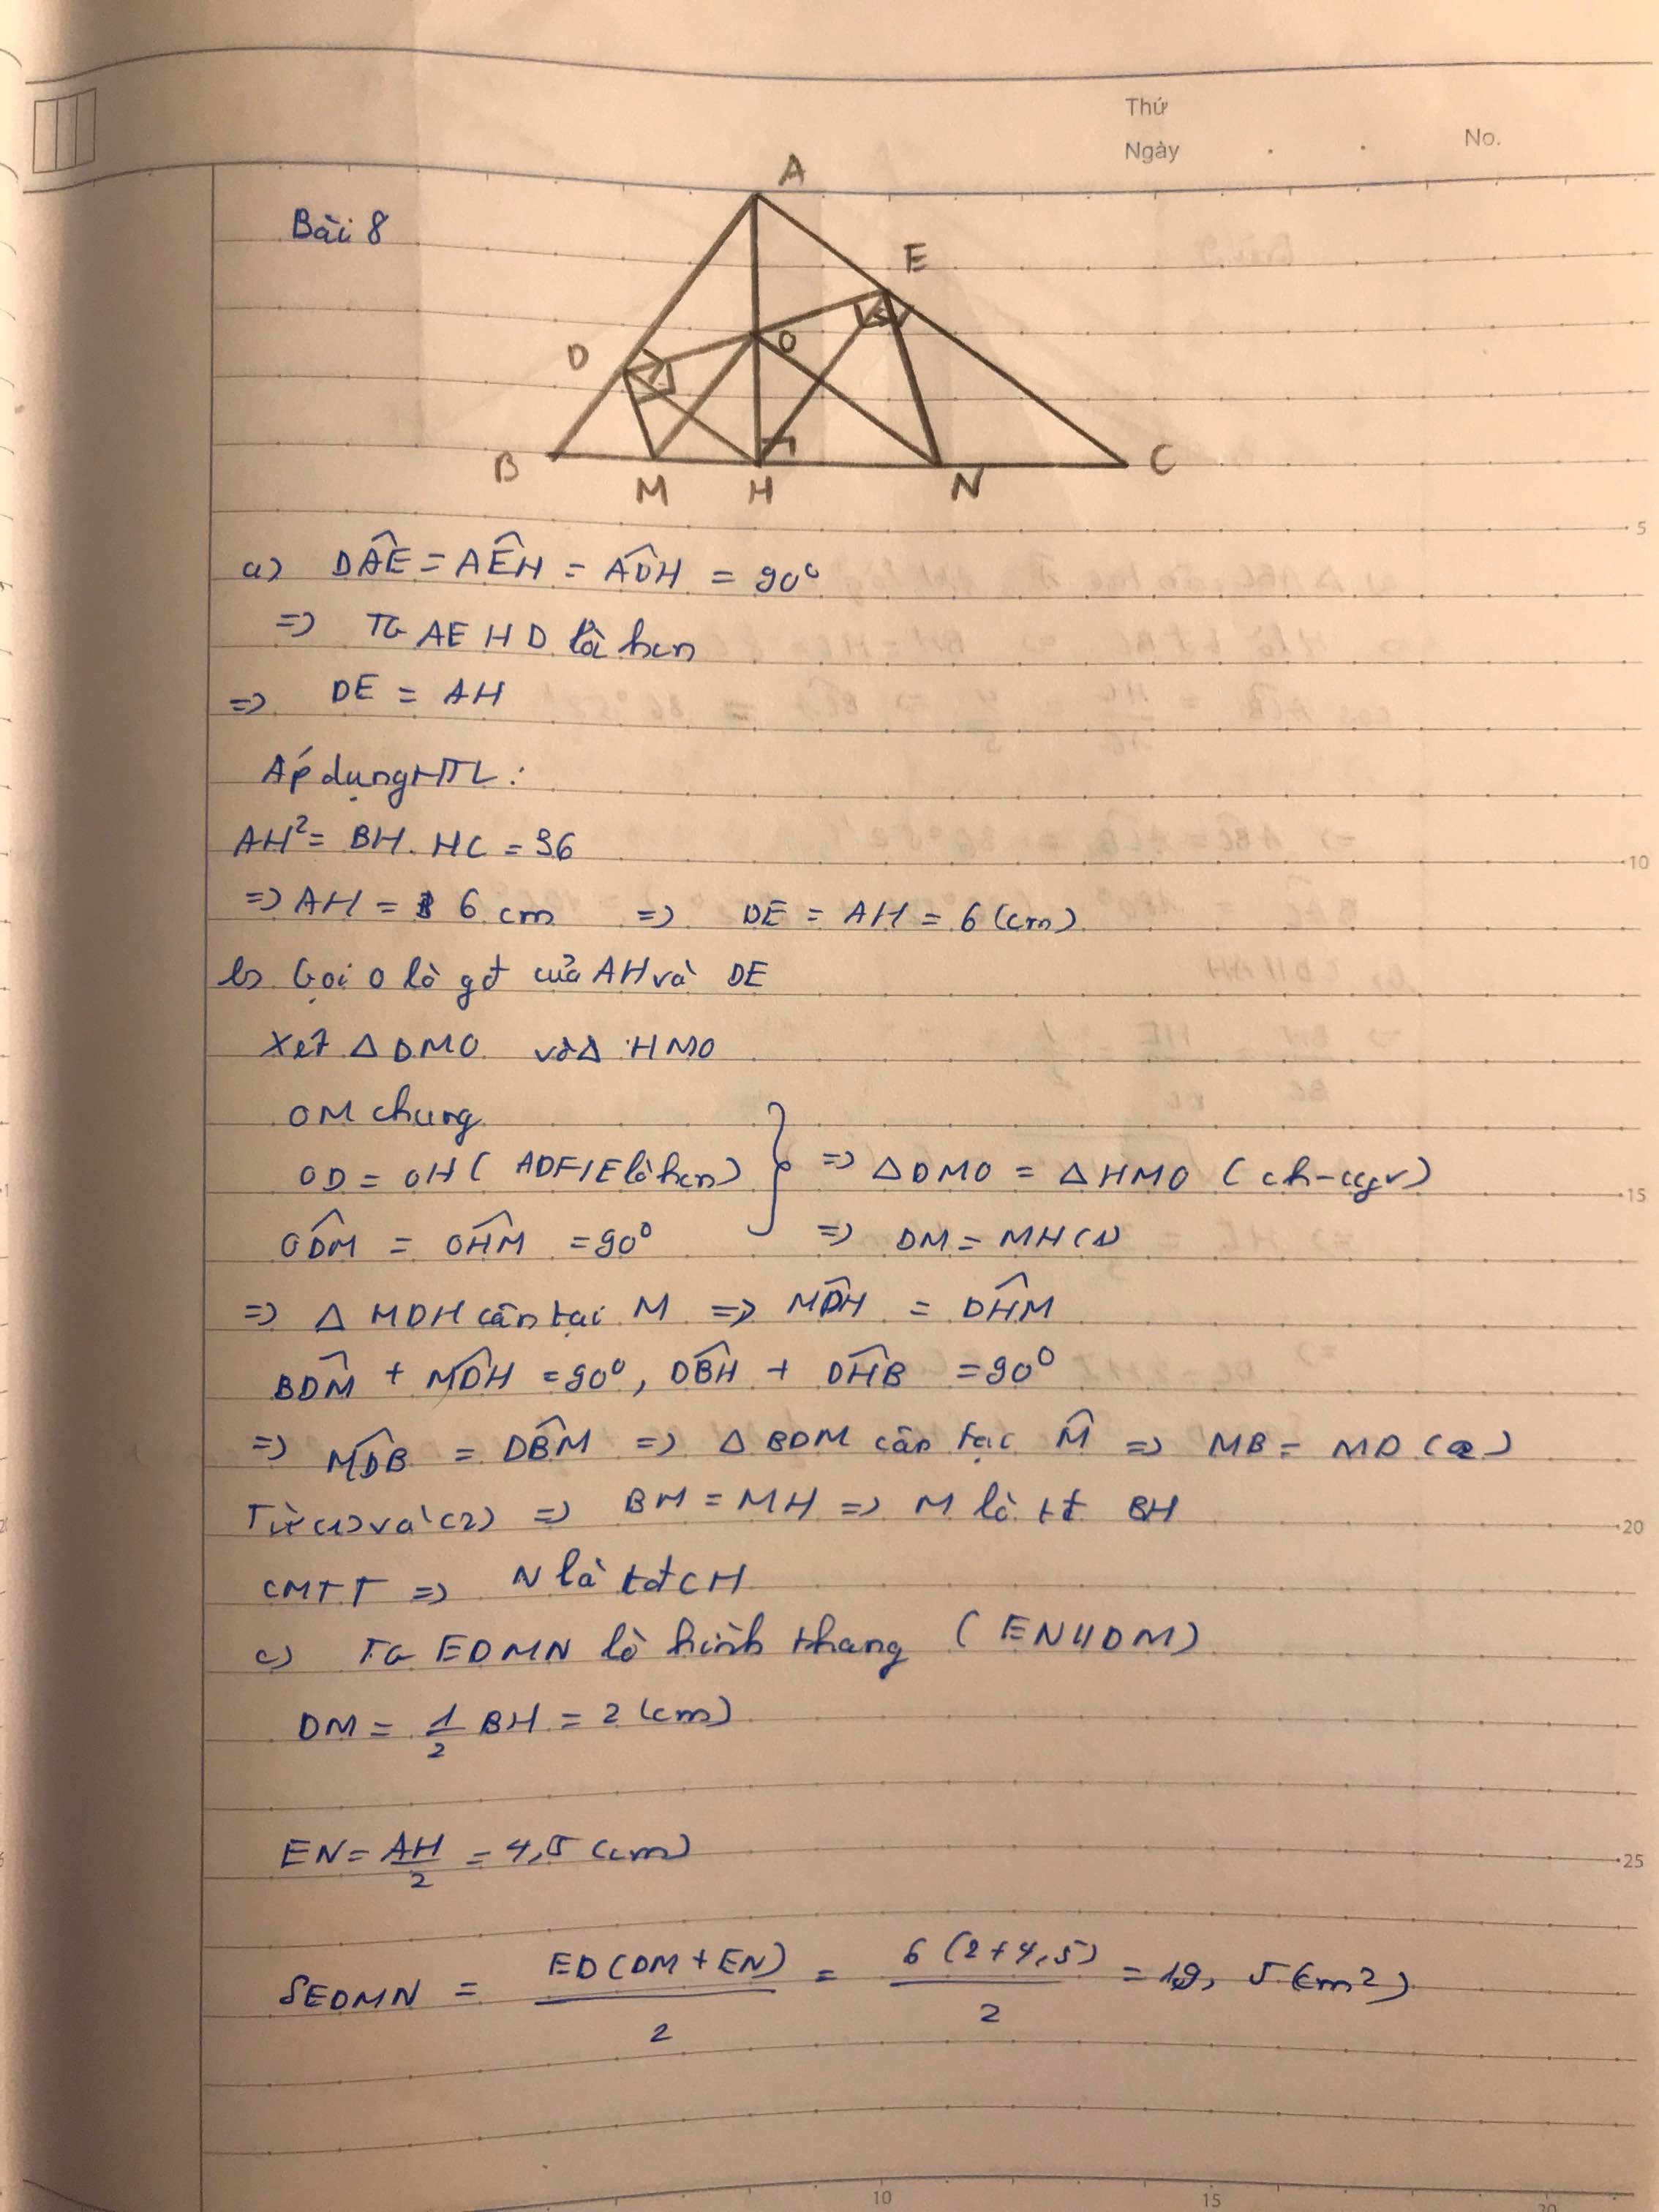 Thứ
Ngày . . No.
Bài 8
A
E
D
O
B M H N C
a) DÂE = AÊH = AD̂H = 90°
=> TG AEHD là hcn
=> DE = AH
Áp dụng HTL :
AH² = BH. HC = 36
=> AH = 6 cm => DE = AH = 6 (cm)
b) Gọi O là gđ của AH và DE
Xét Δ DMO và Δ HMO
OM chung
OD = OH ( ADHE là hcn) => Δ DMO = Δ HMO ( ch-cgv)
OD̂M = OĤM = 90° => DM = MH (1)
=> Δ MDH cân tại M => MD̂H = DĤM
BD̂M + MD̂H = 90°, DB̂H + DĤB = 90°
=> MD̂B = DB̂M => Δ BDM cân tại M̂ => MB = MD (2)
Từ (1) và (2) => BM = MH => M là tđ BH
CMTT => N là tđ CH
c) TG EDMN là hình thang ( EN//DM)
DM = 1/2 BH = 2 (cm)
EN = AH/2 = 4,5 (cm)
SEDMN = ED(DM + EN)/2 = 6(2+4,5)/2 = 19,5 (cm2)
5
10
15
20
25
10 15 20